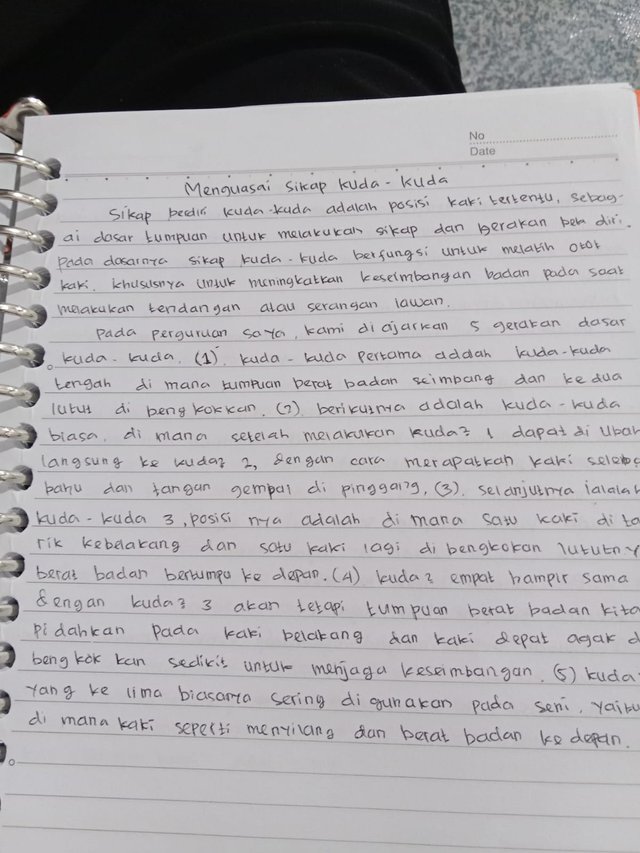 No
Date
Menguasai Sikap kuda-kuda
Sikap bediri kuda-kuda adalah posisi kaki tertentu, sebag-
ai dasar tumpuan untuk melakukan sikap dan gerakan bela diri.
Pada dasarnya sikap kuda-kuda berfungsi untuk melatih otot
kaki, khususnya untuk meningkatkan keseimbangan badan pada saat
melakukan tendangan atau serangan lawan.
Pada perguruan saya, kami di ajarkan 5 gerakan dasar
kuda-kuda. (1). kuda-kuda pertama adalah kuda-kuda
tengah di mana tumpuan berat badan seimbang dan ke dua
lutut di bengkokkan. (2) berikutnya adalah kuda-kuda
biasa, di mana setelah melakukan kuda² 1 dapat di ubah
langsung ke kuda² 2, dengan cara merapatkan kaki
bahu dan tangan di pinggang. (3). selanjutnya ialalah
kuda-kuda 3, posisi nya adalah di mana satu kaki di ta
rik kebelakang dan satu kaki lagi di bengkokan lututny
berat badan bertumpu ke depan. (4) kuda² empat hampir sama
dengan kuda² 3 akan tetapi tumpuan berat badan kita
pidahkan pada kaki belakang dan kaki depat agak d
bengkok kan sedikit untuk menjaga keseimbangan. (5) kuda
yang ke lima biasanya sering di gunakan pada seni, yaitu
di mana kaki seperti menyilang dan berat badan ke depan.